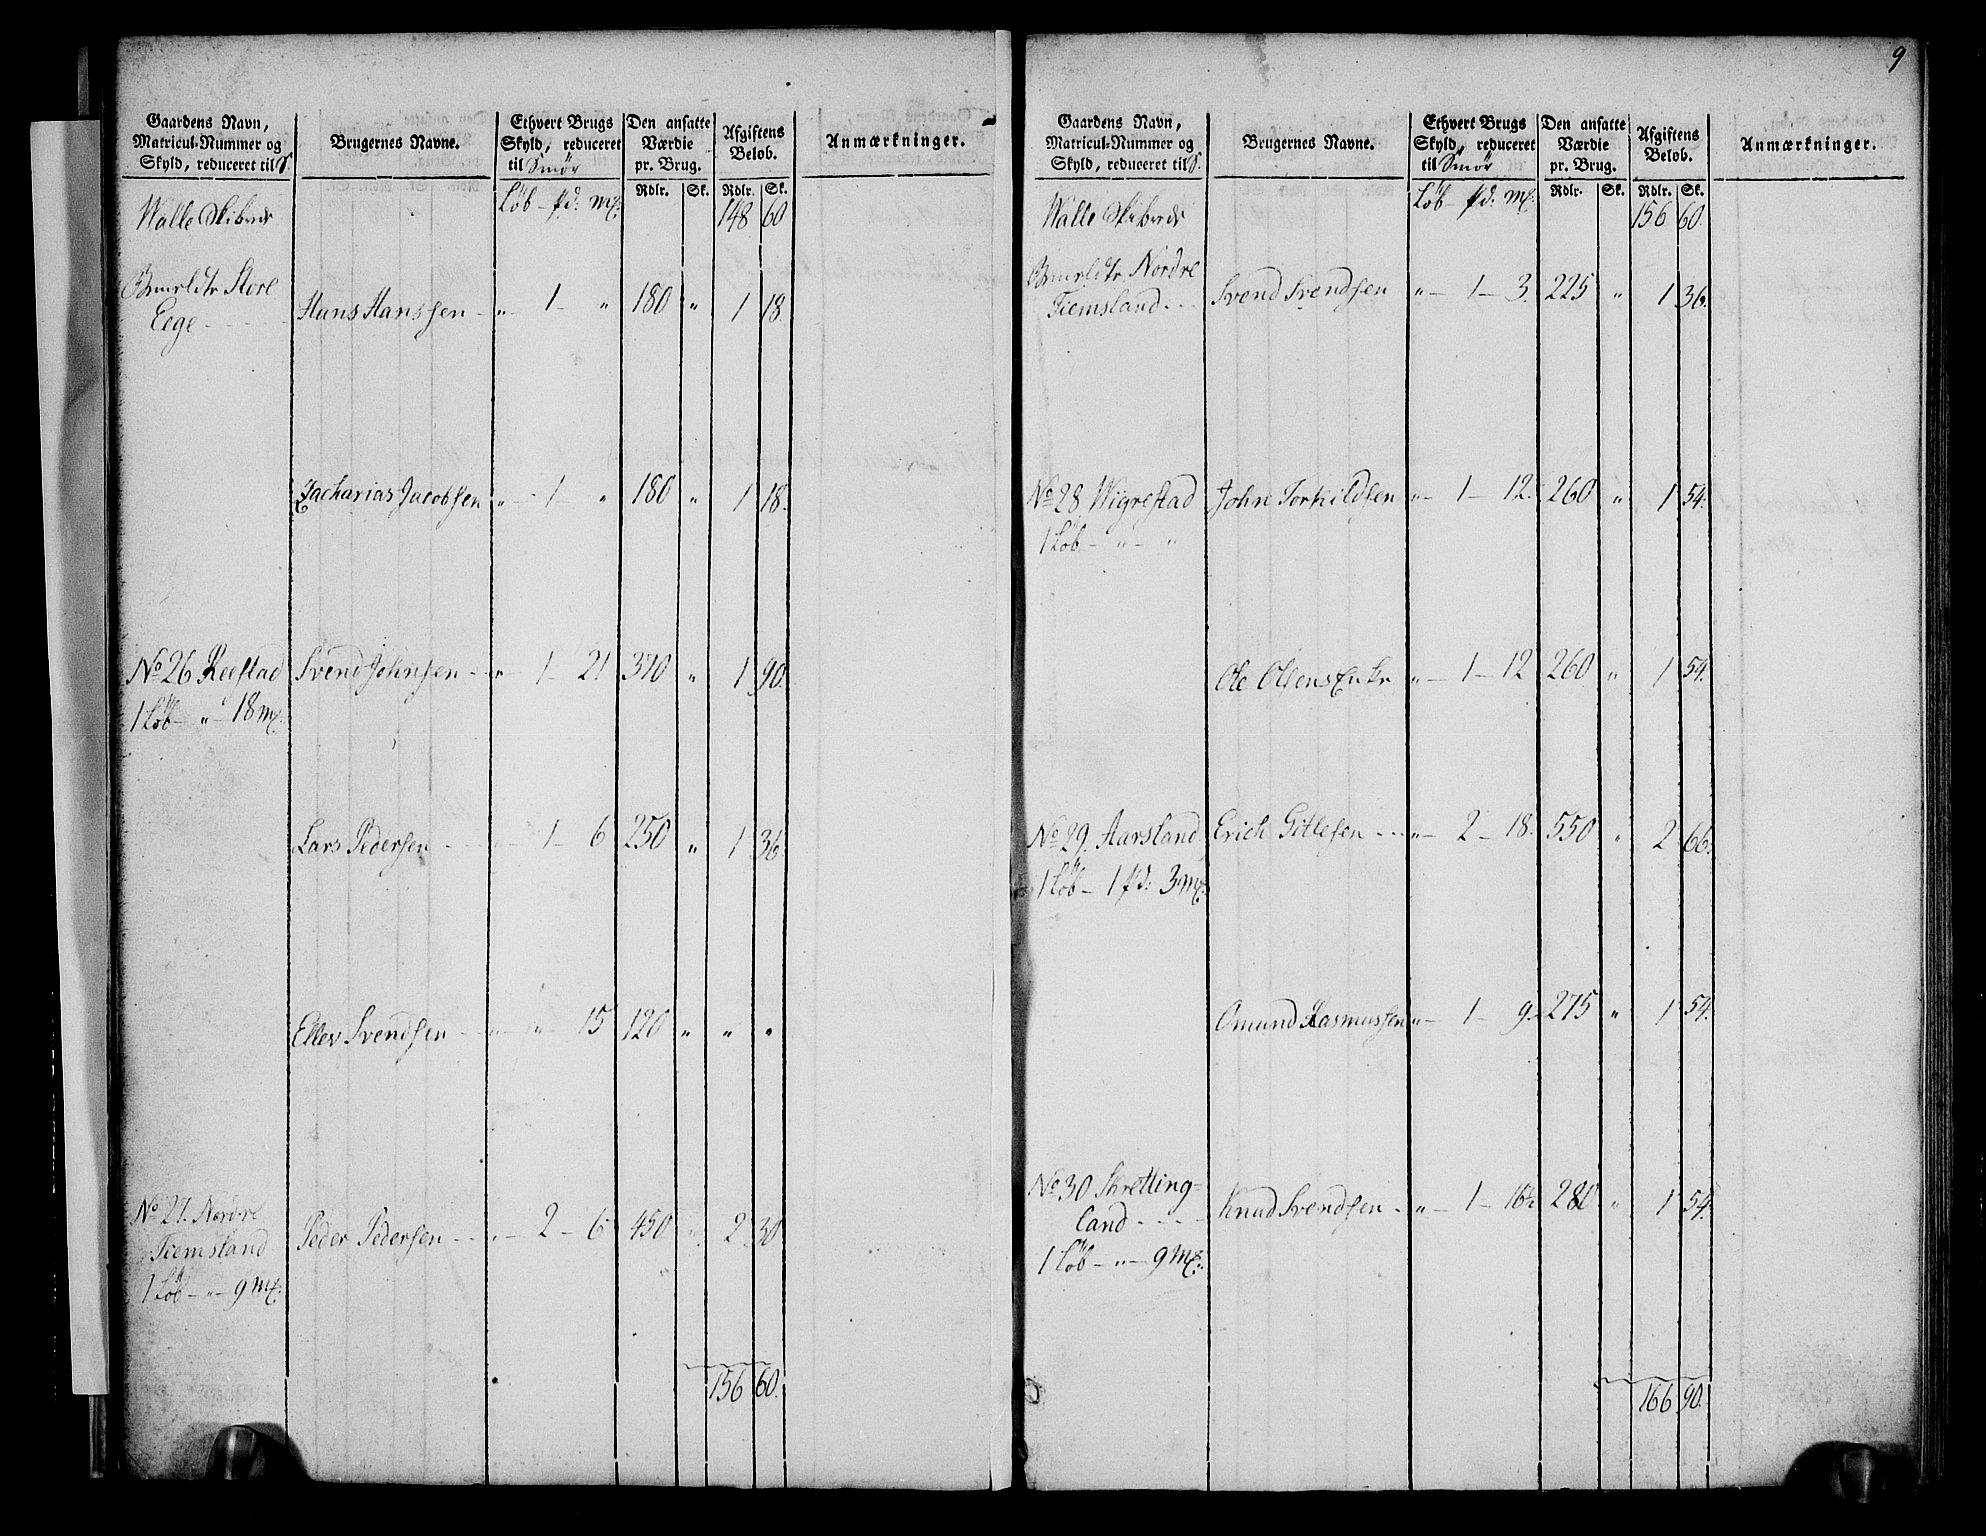 Gaardens Navn, Matricul-Nummer og Skyld, reduceret til S. | Brugernes Navne. | Ethvert Brugs Skyld, reduceret til Smör | Den ansatte Værdie pr. Brug. | Afgiftens Belob. | Anmærkninger.
Löb – pd: mk: | Rdlr. | Sk. | Rdlr. | Sk.
Walle Skibrede | 148 | 60
Store
Eege | Hans Hanssen | " – 1 – " | 180 | " | 1 | 18.
Zacharias Jacobsen | " – 1 – " | 180 | " | 1 | 18.
No 26 Reestad | Svend Johnsen | " – 1 – 21 | 370 | " | 1 | 90.
1 Löb – " – 18 mk:
Lars Pedersen | " – 1 – 6 | 250 | " | 1 | 36.
Ellev Svendsen | " – " – 15 | 120 | " | " | "
No 27. Nordre
Tiemsland | Peder Pedersen | " – 2 – 6 | 450 | " | 2 | 30
1 Löb – " – 9 mk:
156 | 60.
9
Gaardens Navn, Matricul-Nummer og Skyld, reduceret til S. | Brugernes Navne. | Ethvert Brugs Skyld, reduceret til Smör | Den ansatte Værdie pr. Brug. | Afgiftens Belob. | Anmærkninger.
Löb – pd: mk: | Rdlr. | Sk. | Rdlr. | Sk.
Walle Skibrede | 156 | 60.
Nordre
Tiemsland | Svend Svendsen | " – 1 – 3. | 225 | " | 1 | 36.
No 28 Wigrestad | John Torkildsen | " – 1 – 12. | 260 | " | 1 | 54.
1 Löb – " – "
Ole Olsens Enke | " – 1 – 12 | 260 | " | 1 | 54.
No 29. Aarsland | Erich Gitlesen | " – 2 – 18. | 550 | " | 2 | 66.
1 Löb – 1 pd: 3 mk:
Omund Rasmussen | " – 1 – 9. | 275 | " | 1 | 54.
No 30 Skretting=
land | Knud Svendsen | " – 1 – 16½ | 280 | " | 1 | 54.
1 Löb – " – 9 mk:
166 | 90.